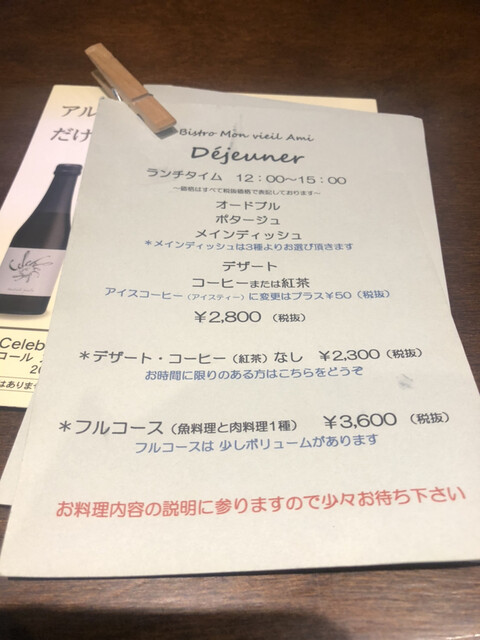 アル
だけ
Bistro Mon vieil Ami
Déjeuner
ランチタイム 12:00~15:00
~価格はすべて税抜価格で表記しております~
オードブル
ポタージュ
メインディッシュ
*メインディッシュは3種よりお選び頂きます
デザート
コーヒーまたは紅茶
アイスコーヒー(アイスティー)に変更はプラス¥50(税抜)
¥2,800 (税抜)
*デザート・コーヒー(紅茶)なし ¥2,300(税抜)
お時間に限りのある方はこちらをどうぞ
*フルコース(魚料理と肉料理1種) ¥3,600(税抜)
フルコースは 少しボリュームがあります
お料理内容の説明に参りますので少々お待ち下さい
Celeb
コール
20
はありませ